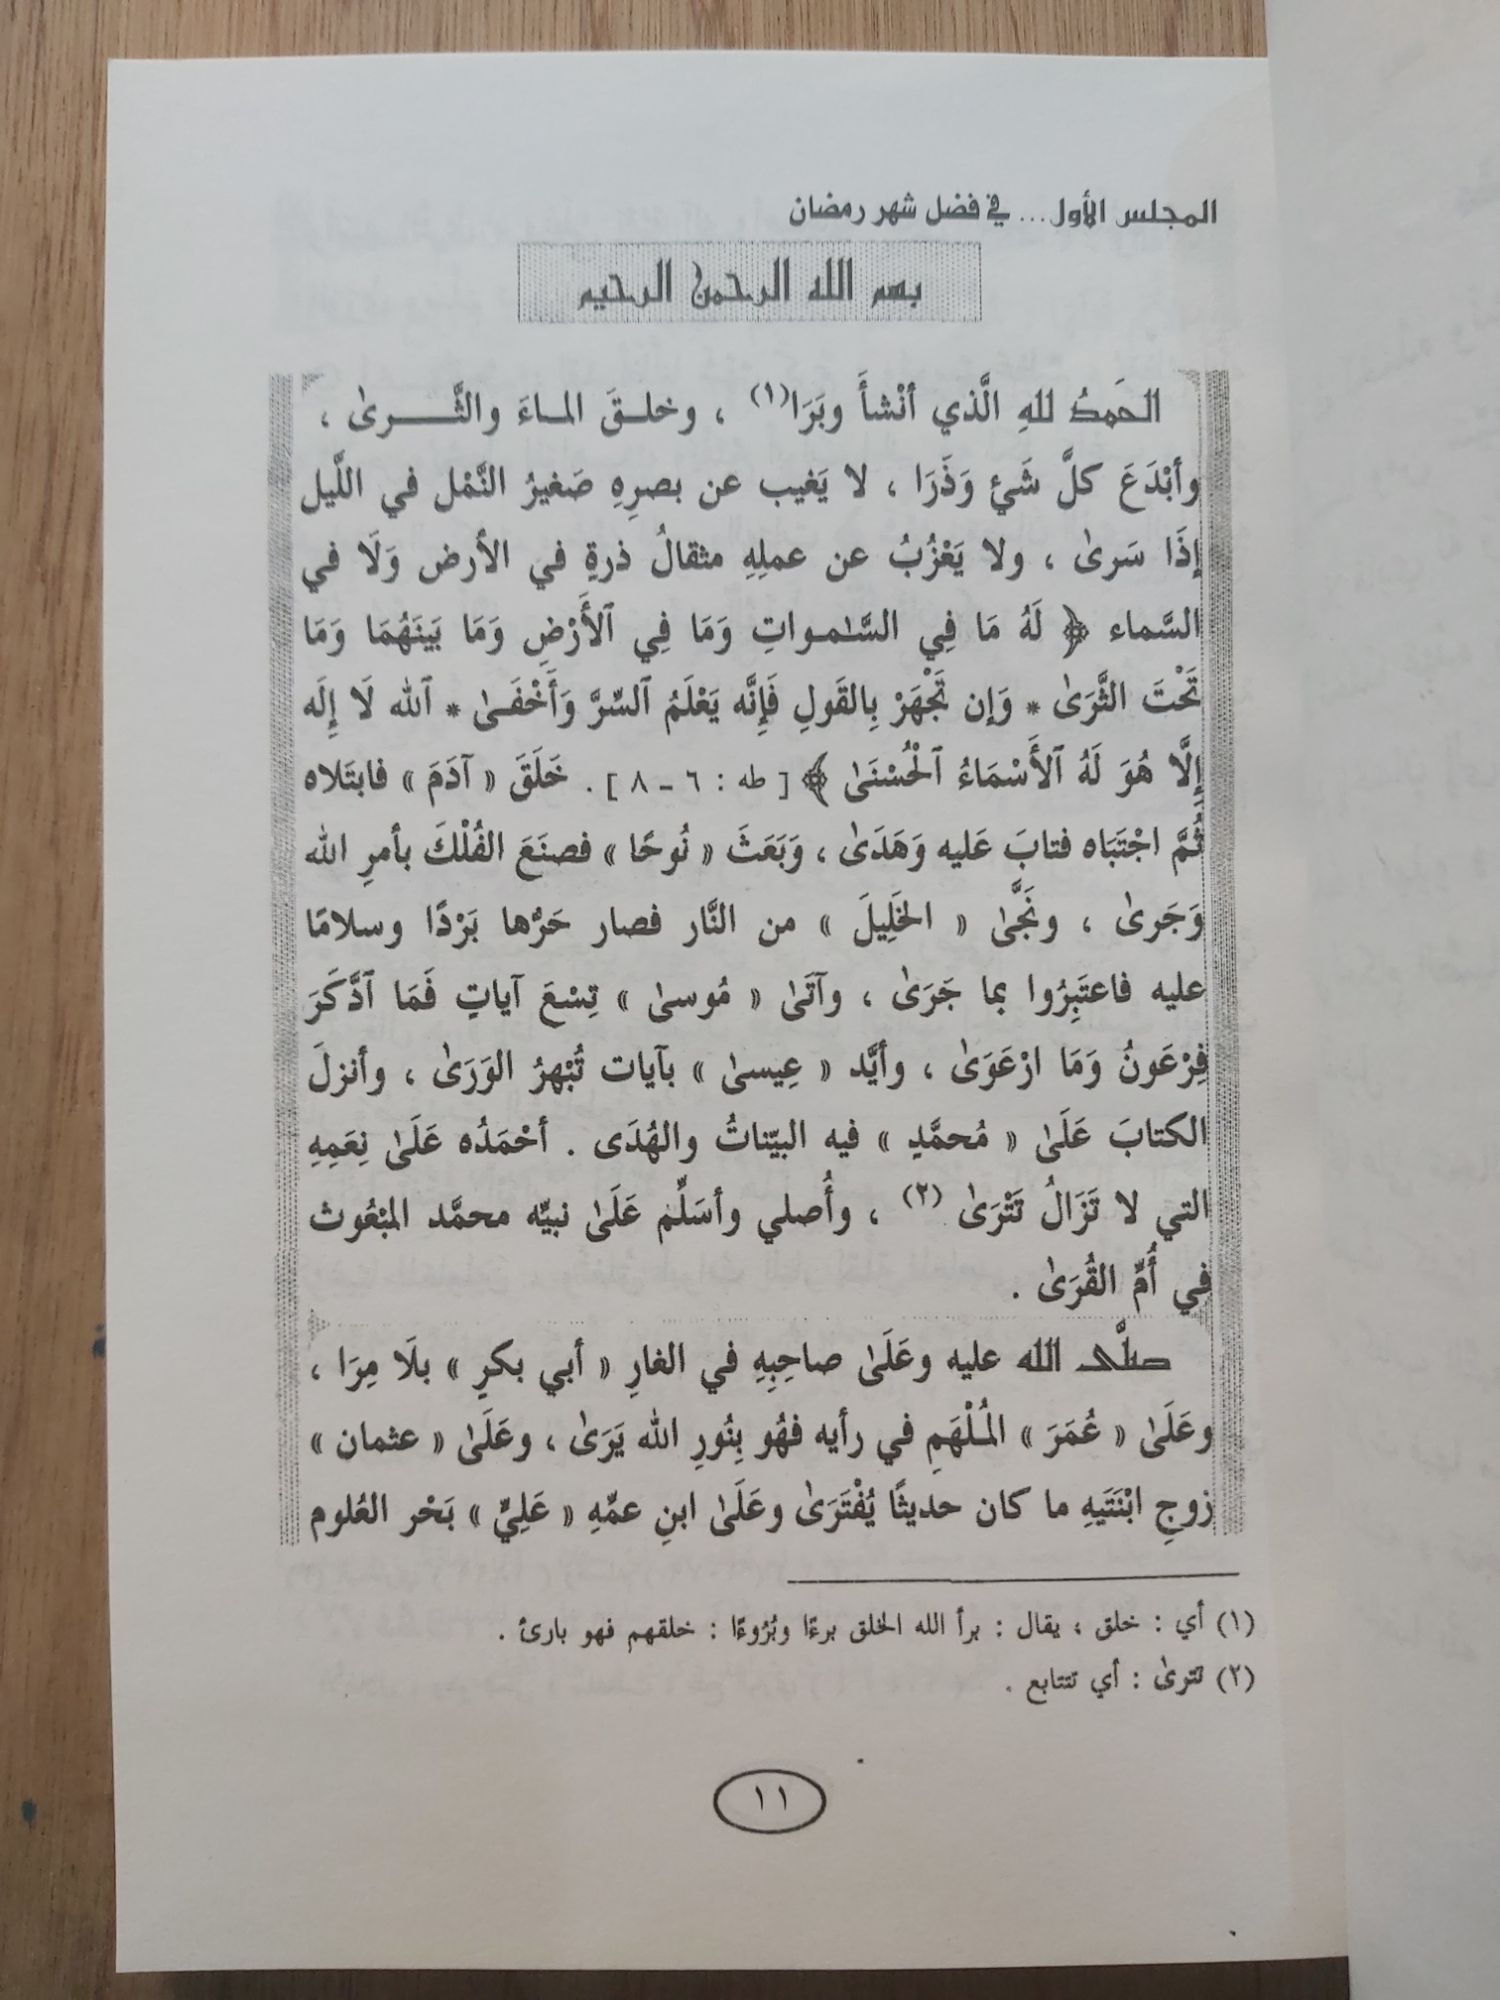 المجلس الأول... في فضل شهر رمضان
بسم الله الرحمن الرحيم
الحَمدُ للهِ الَّذي أنْشأَ وبَرَا(١) ، وخلـقَ المـاءَ والثَّــرىٰ ،
وأبْدَعَ كلَّ شَيْءٍ وَذَرَا ، لا يَغيب عن بصرِهِ صَغيرُ النَّمْل في اللَّيل
إذَا سَرىٰ ، ولا يَعْزُبُ عن عملِهِ مثقالُ ذرةٍ في الأرض وَلَا في
السَّماء ﴿ لَهُ مَا فِي السَّمٰواتِ وَمَا فِي ٱلأَرْضِ وَمَا بَينَهُمَا وَمَا
تَحْتَ الثَّرَىٰ * وَإن تَجْهَرْ بِالقَولِ فَإِنَّه يَعْلَمُ ٱلسِّرَّ وَأَخْفَـىٰ * ٱلله لَا إِلَه
إلَّا هُوَ لَهُ ٱلأَسْمَاءُ ٱلْحُسْنَىٰ ﴾ [ طه : ٦ - ٨ ] . خَلَقَ « آدَمَ » فابتَلاه
ثُمَّ اجْتَبَاه فتابَ عَليه وَهَدَىٰ ، وَبَعَثَ « نُوحًا » فصنَعَ الفُلْكَ بأمرِ الله
وَجَرىٰ ، ونَجَّىٰ « الخَلِيلَ » من النَّار فصار حَرُّها بَرْدًا وسلامًا
عليه فاعتَبِرُوا بما جَرَىٰ ، وآتَىٰ « مُوسىٰ » تِسْعَ آياتٍ فَمَا ٱدَّكَرَ
فِرْعَونُ وَمَا ارْعَوَىٰ ، وأيَّد « عِيسىٰ » بآيات تُبْهِرُ الوَرَىٰ ، وأنزلَ
الكتابَ عَلَىٰ « مُحمَّدٍ » فيه البيّناتُ والهُدَى . أحْمَدُه عَلَىٰ نِعَمِهِ
التي لا تَزَالُ تَتْرَىٰ (٢) ، وأُصلي وأسَلِّم عَلَىٰ نبيِّه محمَّد المبْعُوث
في أُمِّ القُرَىٰ .
صلَّى الله عليه وعَلَىٰ صاحِبِهِ في الغارِ « أبي بكرٍ » بلَا مِرَا ،
وعَلَىٰ « عُمَرَ » المُلْهَمِ في رأيه فهُو بِنُورِ الله يَرَىٰ ، وعَلَىٰ « عثمان »
زوجِ ابْنَتَيهِ ما كان حديثًا يُفْتَرَىٰ وعَلَىٰ ابنِ عمِّهِ « عَلِيٍّ » بَحْر العُلوم
(١) أي : خلق ، يقال : برأ الله الخلق برءًا وبُرُوءًا : خلقهم فهو بارئ .
(٢) تترىٰ : أي تتتابع .
١١